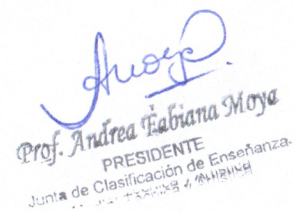 Prof. Andrea Fabiana Moya
PRESIDENTE
Junta de Clasificación de Enseñanza